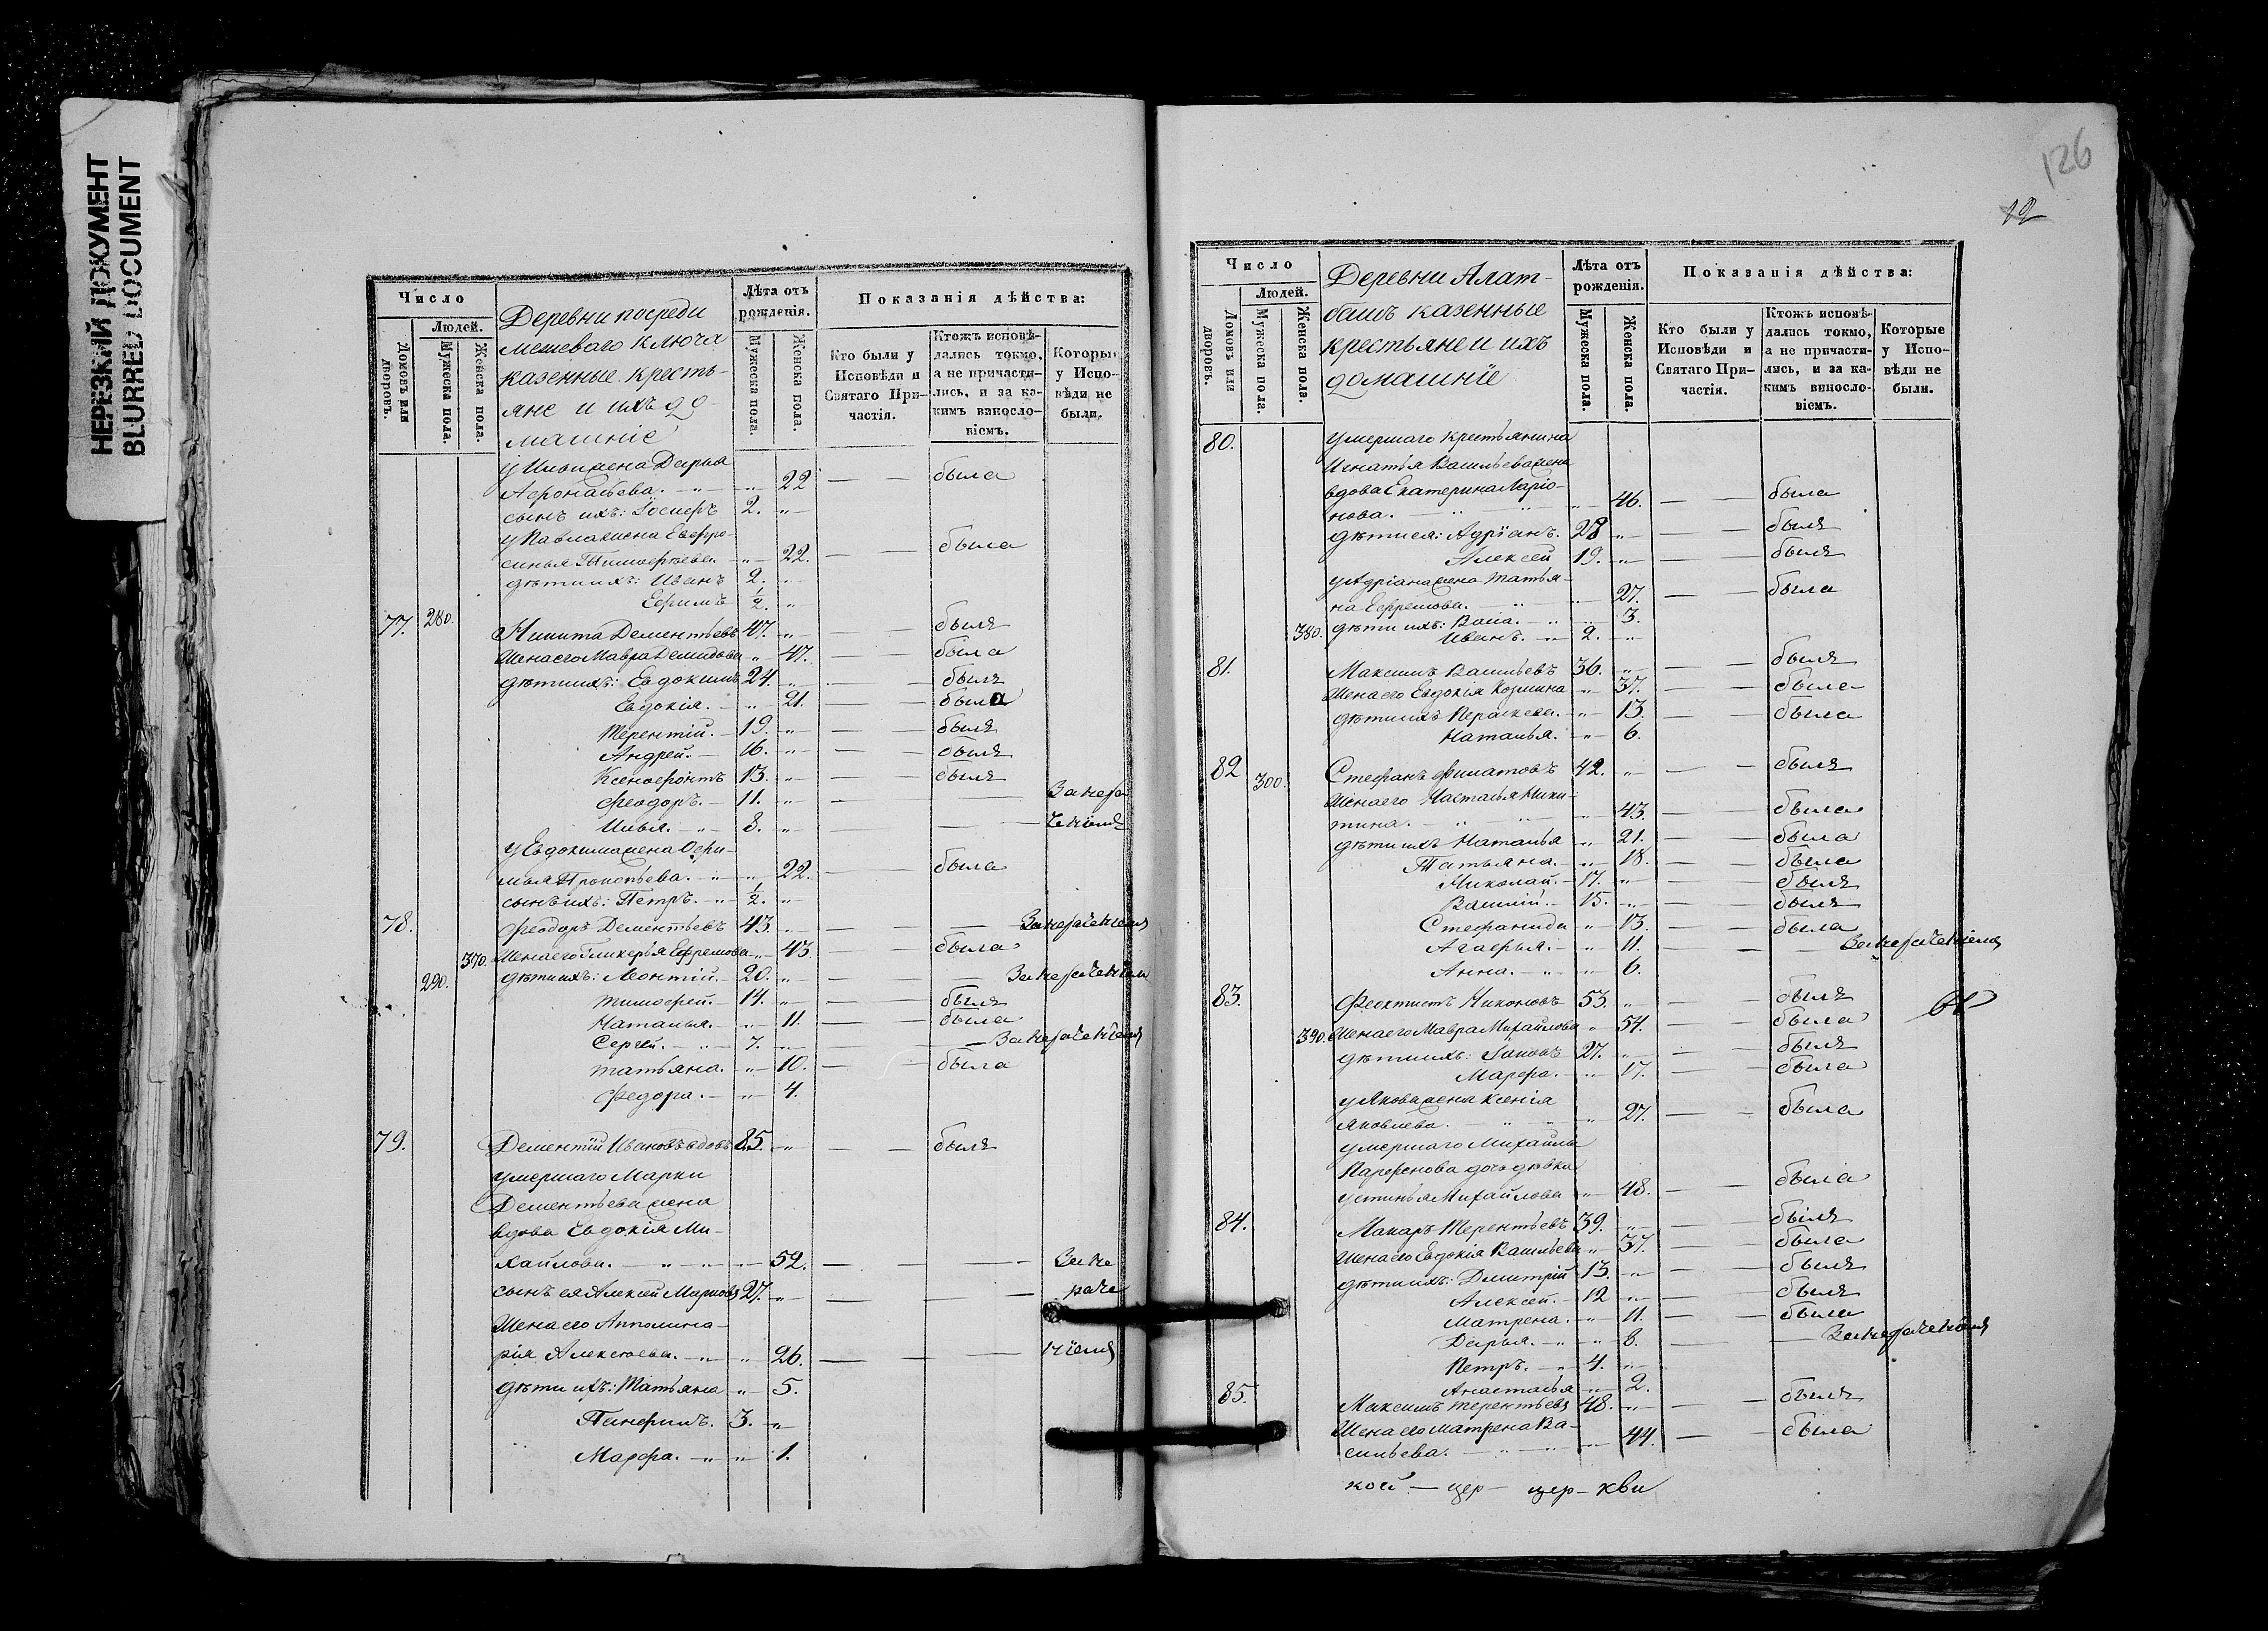 НЕРЕЗКИЙ ДОКУМЕНТ
BLURRED DOCUMENT
Число
Людей.
Домовъ или дворовъ.
Мужеска пола.
Женска пола.
Деревни посреди
мешеваго Ключа
казенные кресть-
яне и ихъ до-
машніе
Лѣта отъ рожденія.
Мужеска пола.
Женска пола.
Показанія дѣйства:
Кто были у Исповѣди и Святаго Причастія.
Ктожъ исповѣдались токмо, а не причастились, и за какимъ винословіемъ.
Которые у Исповѣди не были.
у Ильи жена Дарья
22 была
сынъ ихъ: Іосифъ 2.
у Павла жена Евфро-
синья Тимофѣева. 22. была
дѣти ихъ: Иванъ 2.
Ефимъ ½.
77. 280. Никита Дементьевъ 47. былъ
Жена его Мавра Демидова 47. была
дѣти ихъ: Евдокимъ 24. былъ
Евдокія. 21. была
Терентій. 19. былъ
Андрей. 16. былъ
Ксенофонтъ 13. былъ
Феодоръ. 11. За нера-
Илья. 8. ченіемъ
у Евдокима жена Офи-
мья Прокопьева. 22. была
сынъ ихъ: Петръ. ½.
78. Феодоръ Дементьевъ 43. За нераченіемъ
370. Жена его Гликерья Ефремова 43. была
290. дѣти ихъ: Леонтій. 20. За нераченіем
Тимофей. 14. былъ
Наталья. 11. была
Сергей. 7. За нераченіемъ
Татьяна. 10. была
Федора. 4.
79. Дементій Ивановъ вдовъ 85. былъ
умершаго Марки
Дементьева жена
вдова Евдокія Ми-
хайлова. 52. За не
сынъ ея Алексей Марковъ 27. раче
Жена его Апполина-
рія Алексѣева. 26. ніемъ
дѣти ихъ: Татьяна 5.
Панфилъ. 3.
Марфа. 1.
126
12
Число
Людей.
Домовъ или дворовъ.
Мужеска пола.
Женска пола.
Деревни Алат-
башъ казенные
крестьяне и ихъ
домашніе
Лѣта отъ рожденія.
Мужеска пола.
Женска пола.
Показанія дѣйства:
Кто были у Исповѣди и Святаго Причастія.
Ктожъ исповѣдались токмо, а не причастились, и за какимъ винословіемъ.
Которые у Исповѣди не были.
80. умершаго крестьянина
Игнатья Васильева жена
вдова Екатерина Ларіо-
нова. 46. была
дѣти ея: Адріанъ. 28 былъ
Алексей 19. былъ
у Адріана жена Татья-
на Ефремова. 27. была
380. дѣти ихъ: Васса. 3.
Иванъ. 2.
81. Максимъ Васильевъ 36. былъ
Жена его Евдокія Козмина 37. была
дѣти ихъ Параскева. 13. была
Наталья. 6.
82 300. Стефанъ Филатовъ 42. былъ
Жена его Настасья Ники-
тина. 43. была
дѣти ихъ Наталья 21. была
Татьяна. 18. была
Николай. 17. былъ
Василій. 15. былъ
Стефанида 13. была
Агафья. 11. За нераченіемъ
Анна. 6.
83. Феоктистъ Никоновъ 53. былъ
390. Жена его Мавра Михайлова 54. была
дѣти ихъ: Іаковъ 27. былъ
Марфа. 17. была
у Якова жена Ксенія
Яковлева. 27. была
умершаго Михайлы
Парфенова дочь дѣвка
Устинья Михайлова 48. была
84. Макаръ Терентьевъ 39. былъ
Жена его Евдокія Васильева 37. была
дѣти ихъ: Дмитрій 13. былъ
Алексей. 12 былъ
Матрена. 11. была
Дарья. 8. За нераченіемъ
Петръ. 4.
Анастасья 2.
85. Максимъ Терентьевъ 48. былъ
Жена его Матрена Ва-
сильева. 44. была
кой — цер — цер — кви